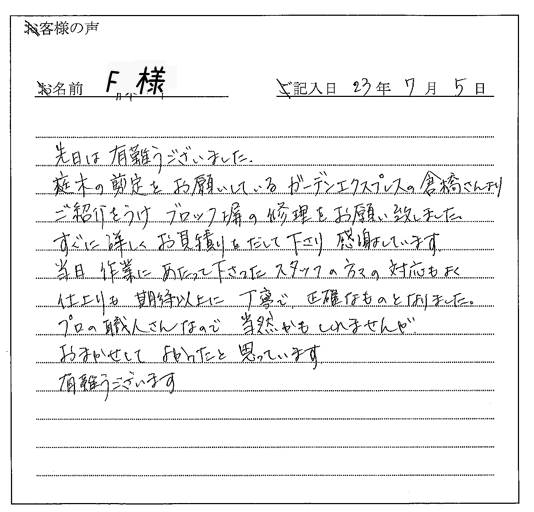 お客様の声
お名前 F 様
ご記入日 23年 7月 5日
先日は 有難うございました.
庭木の剪定を お願いしている ガーデンエクスプレスの倉橋さんより
ご紹介をうけ ブロック塀の修理をお願い致しました。
すぐに詳しく お見積りをだして下さり 感謝しています
当日 作業に あたって下さった スタッフの方々の 対応もよく
仕上りも 期待以上に 丁寧で、正確なものとなりました。
プロの職人さんなので 当然かもしれませんが
おまかせして よかったと 思っています
有難うございます